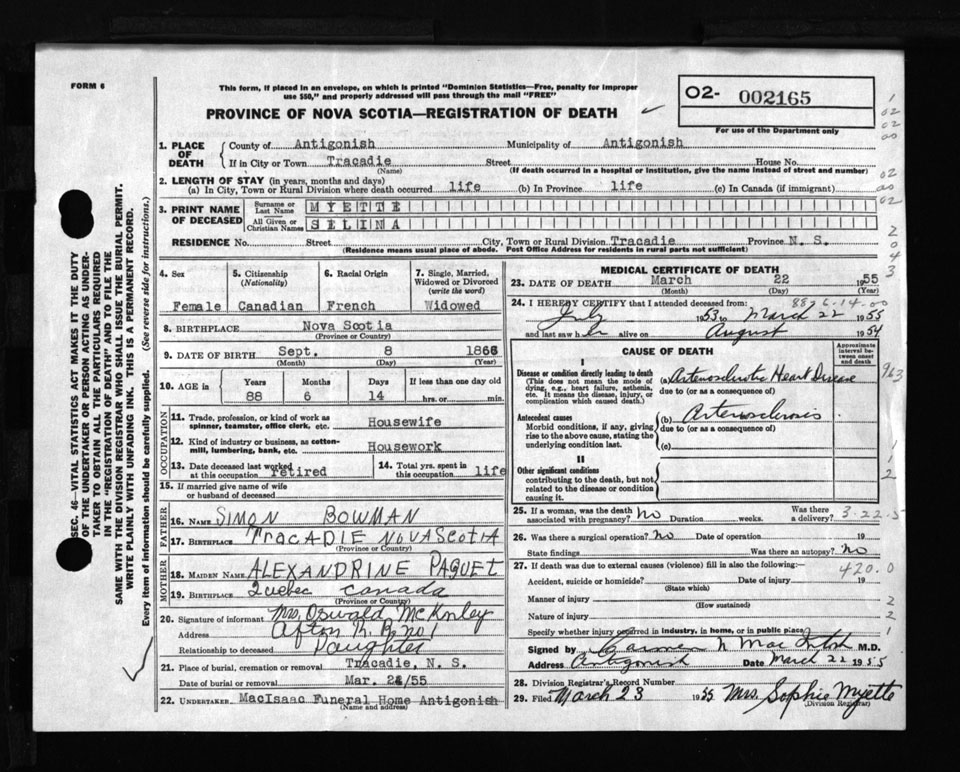 FORM 6
This form, if placed in an envelope, on which is printed "Dominion Statistics—Free, penalty for improper
use $50," and properly addressed will pass through the mail "FREE"
PROVINCE OF NOVA SCOTIA—REGISTRATION OF DEATH
O2- 002165
For use of the Department only
1. PLACE OF DEATH
County of Antigonish Municipality of Antigonish
If in City or Town Tracadie Street House No.
(Name) (If death occurred in a hospital or institution, give the name instead of street and number)
2. LENGTH OF STAY (in years, months and days)
(a) In City, Town or Rural Division where death occurred life (b) In Province life (c) In Canada (if immigrant)
3. PRINT NAME OF DECEASED
Surname or Last Name MYETTE
All Given or Christian Names SELINA
RESIDENCE No. Street City, Town or Rural Division Tracadie Province N. S.
(Residence means usual place of abode. Post Office Address for residents in rural parts not sufficient)
4. Sex Female
5. Citizenship (Nationality) Canadian
6. Racial Origin French
7. Single, Married, Widowed or Divorced (write the word) Widowed
8. BIRTHPLACE Nova Scotia
(Province or Country)
9. DATE OF BIRTH Sept. 8 1866
(Month) (Day) (Year)
10. AGE in Years Months Days If less than one day old
88 6 14 hrs. or min.
OCCUPATION
11. Trade, profession, or kind of work as
spinner, teamster, office clerk, etc. Housewife
12. Kind of industry or business, as cotton-
mill, lumbering, bank, etc. Housework
13. Date deceased last worked
at this occupation retired
14. Total yrs. spent in
this occupation life
15. If married give name of wife
or husband of deceased
FATHER
16. NAME SIMON BOWMAN
17. BIRTHPLACE TRACADIE NOVA SCOTIA
(Province or Country)
MOTHER
18. MAIDEN NAME ALEXANDRINE PAQUET
19. BIRTHPLACE Quebec Canada
(Province or Country)
20. Signature of informant Mrs. Oswald McKinley
Address Afton R. R. no 1
Relationship to deceased Daughter
21. Place of burial, cremation or removal Tracadie, N. S.
Date of burial or removal Mar. 24/55
22. UNDERTAKER MacIsaac Funeral Home Antigonish
(Name and address)
MEDICAL CERTIFICATE OF DEATH
23. DATE OF DEATH March 22 1955
(Month) (Day) (Year)
24. I HEREBY CERTIFY that I attended deceased from: 88 6-14-00
July 1953 to March 22 1955
and last saw her alive on August 1954
CAUSE OF DEATH
Approximate interval between onset and death
I
Disease or condition directly leading to death
(This does not mean the mode of dying, e.g., heart failure, asthenia, etc. It means the disease, injury, or complication which caused death.)
(a) Arteriosclerotic Heart Disease
due to (or as a consequence of)
Antecedent causes
Morbid conditions, if any, giving rise to the above cause, stating the underlying condition last.
(b) Arteriosclerosis
due to (or as a consequence of)
(c)
II
Other significant conditions
contributing to the death, but not related to the disease or condition causing it.
25. If a woman, was the death
associated with pregnancy? No Duration weeks. Was there
a delivery? 3-22-5
26. Was there a surgical operation? No Date of operation 19
State findings Was there an autopsy? No
27. If death was due to external causes (violence) fill in also the following:— 420.0
Accident, suicide or homicide? Date of injury 19
(State which)
Manner of injury
(How sustained)
Nature of injury
Specify whether injury occurred in industry, in home, or in public place
Signed by N MacIntosh M.D.
Address Antigonish Date March 22 1955
28. Division Registrar's Record Number
29. Filed March 23 1955 Mrs. Sophie Myette
(Division Registrar)
SEC. 46—VITAL STATISTICS ACT MAKES IT THE DUTY
OF THE UNDERTAKER OR PERSON ACTING AS UNDER-
TAKER TO OBTAIN ALL THE PARTICULARS REQUIRED
IN THE "REGISTRATION OF DEATH" AND TO FILE THE
SAME WITH THE DIVISION REGISTRAR WHO SHALL ISSUE THE BURIAL PERMIT.
WRITE PLAINLY WITH UNFADING INK. THIS IS A PERMANENT RECORD.
Every item of information should be carefully supplied. (See reverse side for instructions.)
1
02
02
00
02
00
02
2
0
4
3
963
1
2
2
2
1